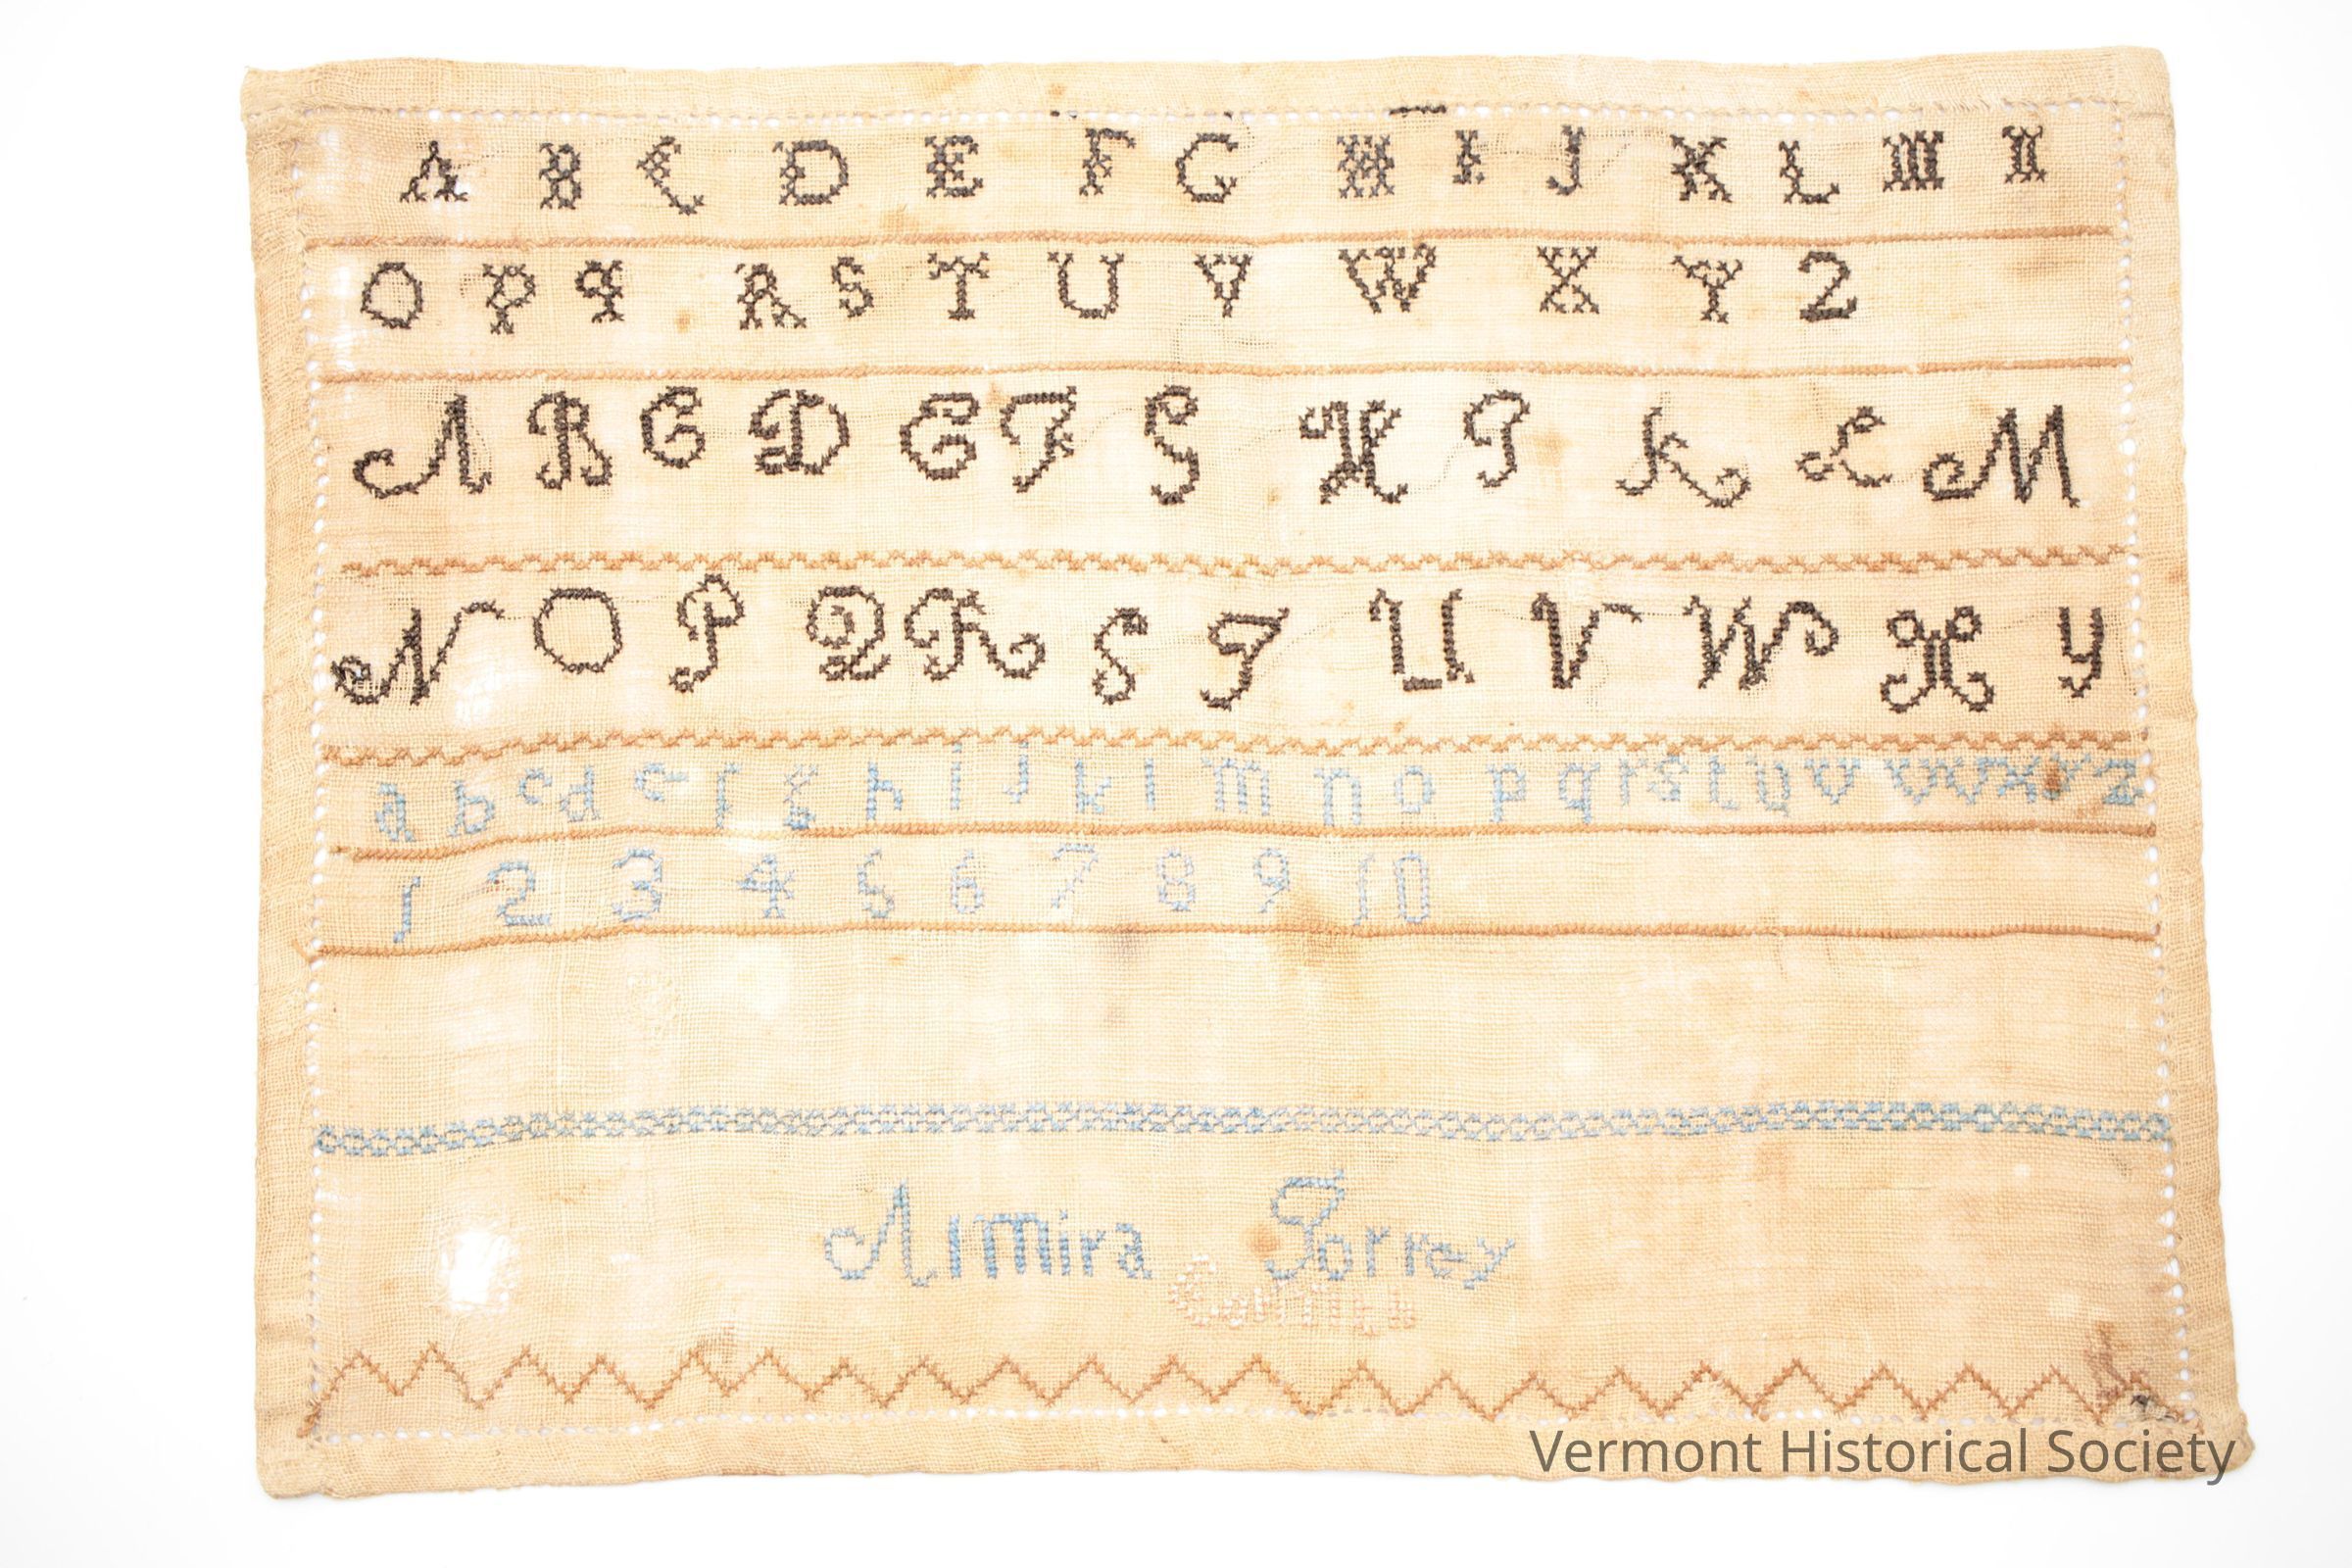 A B C D E F G H I J K L M N
O P q R S T U V W X Y Z
A B C D E F G H I K L M
N O P Q R S T U V W X Y
a b c d e f g h i j k l m n o p q r s t u v w x y z
1 2 3 4 5 6 7 8 9 10
Almira Torrey
Corinth
Vermont Historical Society